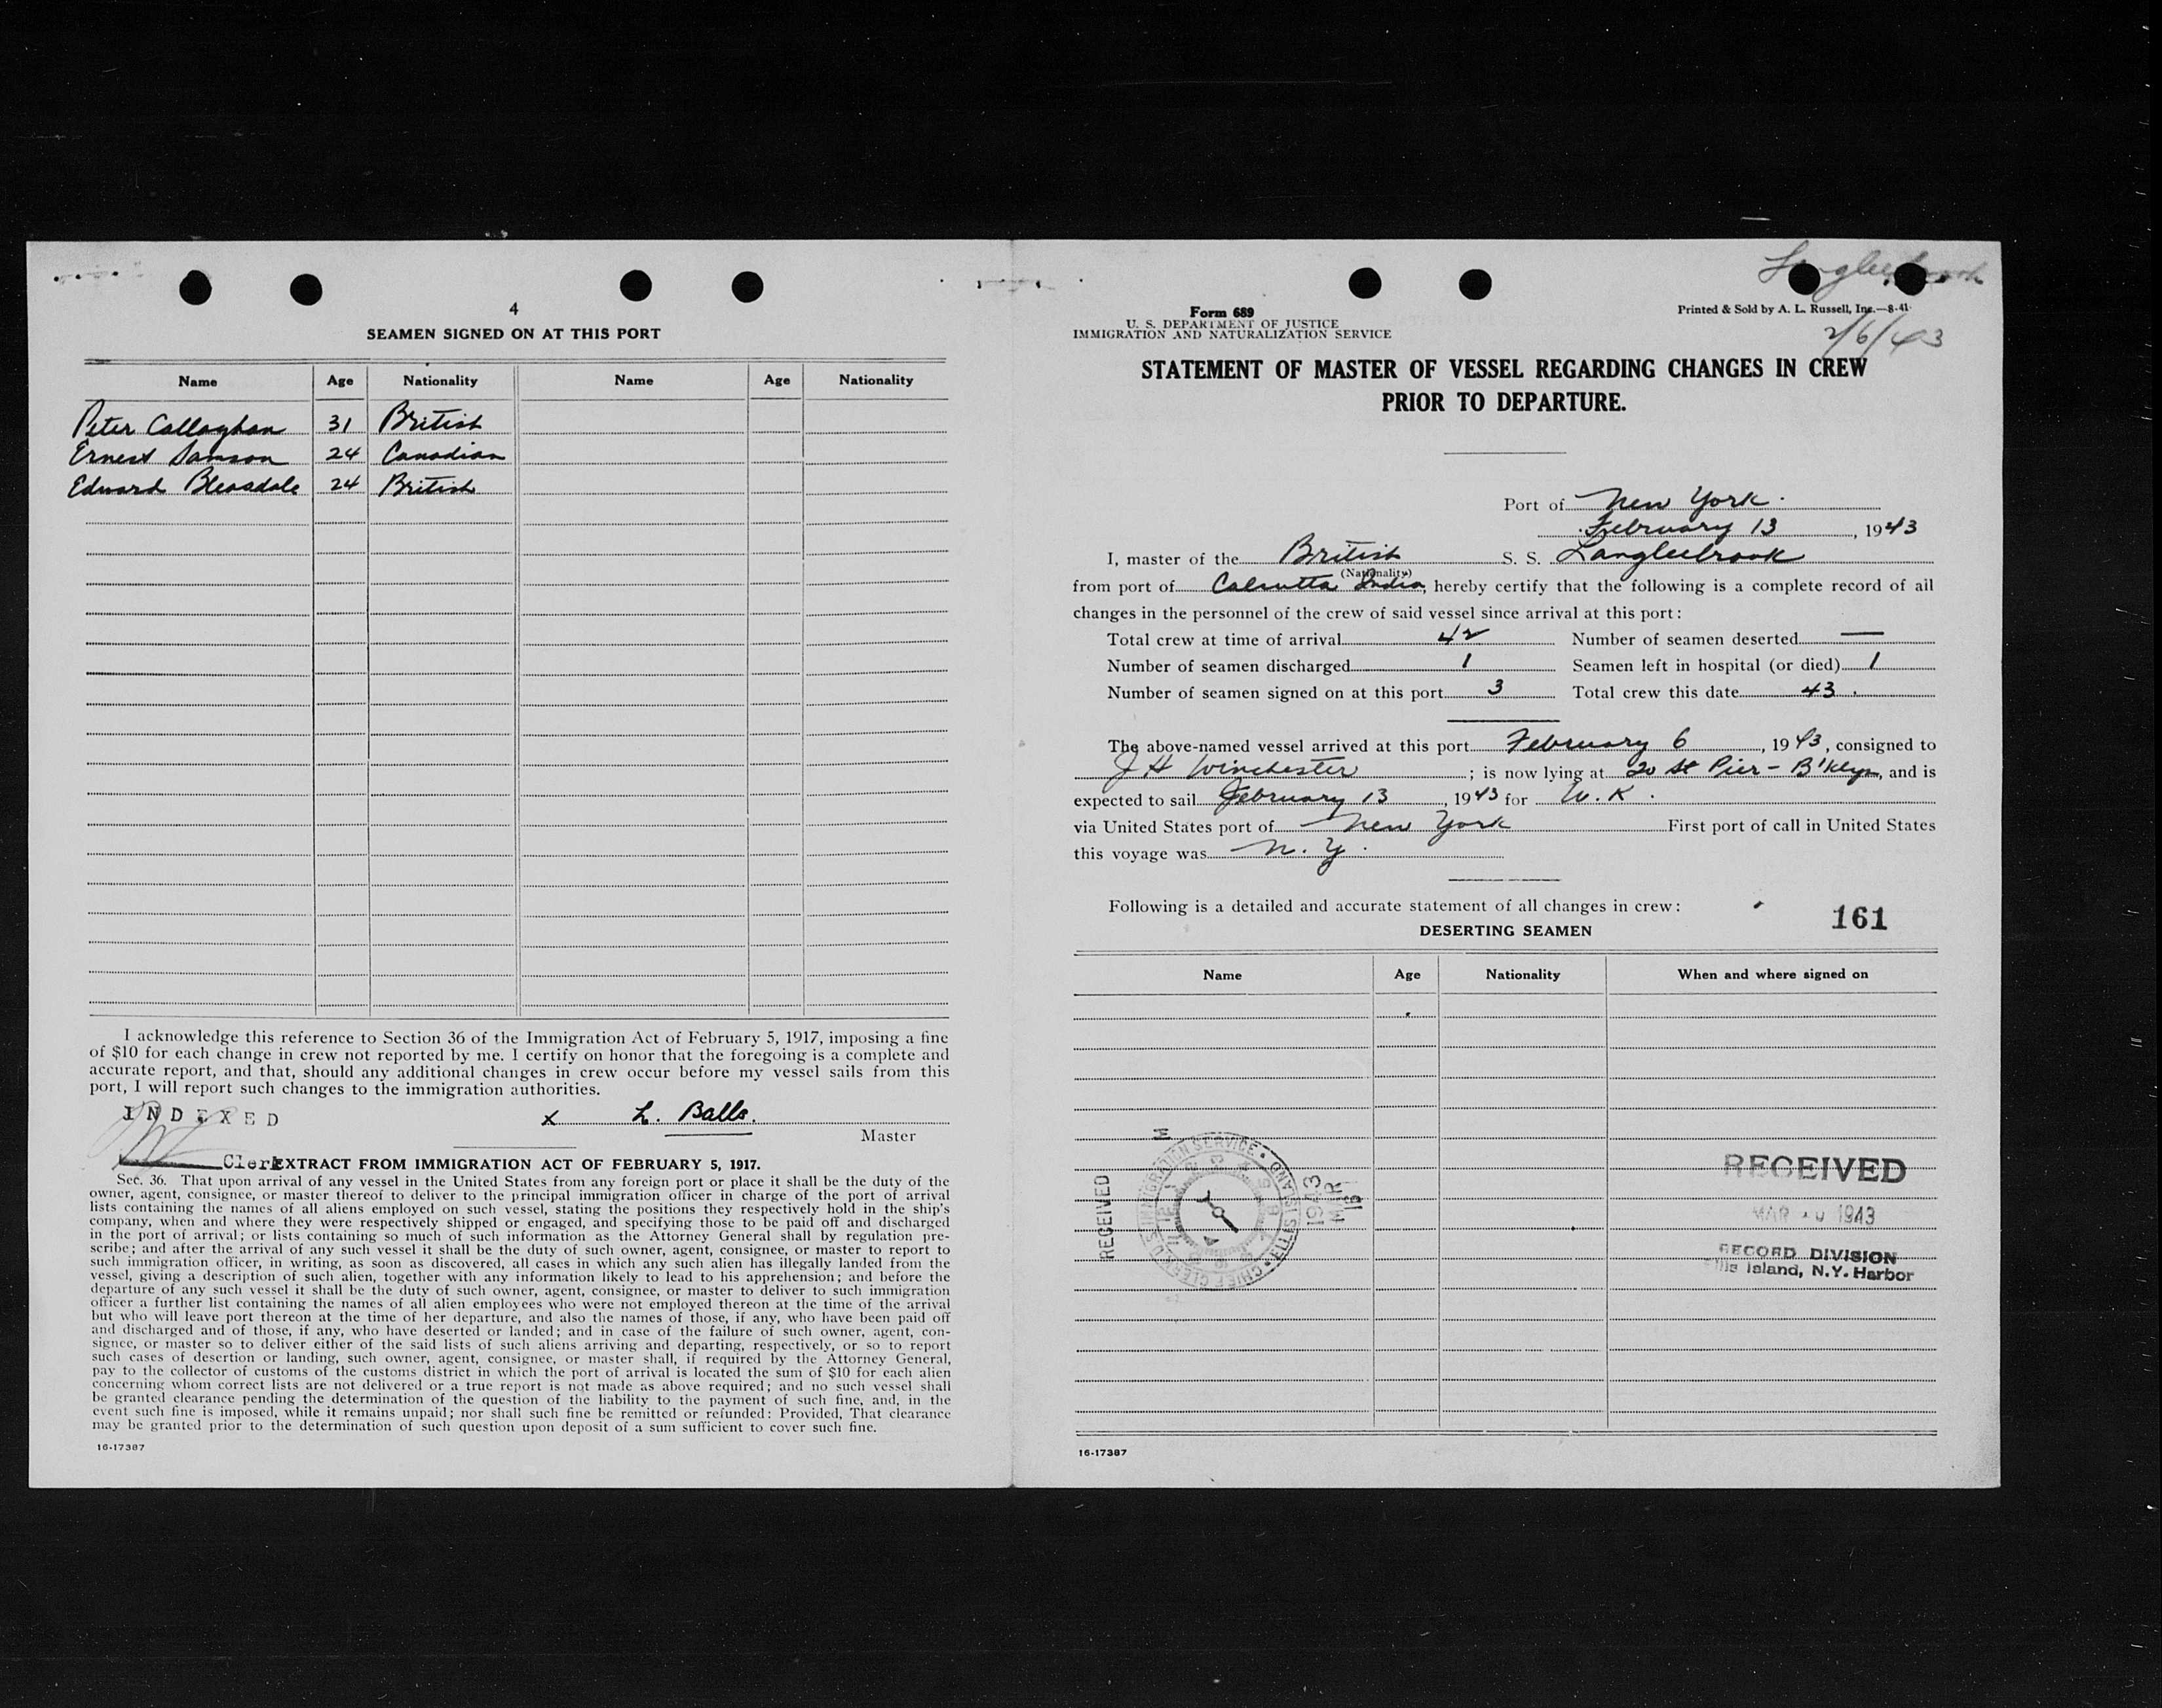 4
SEAMEN SIGNED ON AT THIS PORT
Name Age Nationality Name Age Nationality
Peter Callaghan 31 British
Ernest Samson 24 Canadian
Edward Bleasdale 24 British
I acknowledge this reference to Section 36 of the Immigration Act of February 5, 1917, imposing a fine
of $10 for each change in crew not reported by me. I certify on honor that the foregoing is a complete and
accurate report, and that, should any additional changes in crew occur before my vessel sails from this
port, I will report such changes to the immigration authorities.
INDEXED
x L. Balls.
Master
Clerk
EXTRACT FROM IMMIGRATION ACT OF FEBRUARY 5, 1917.
Sec. 36. That upon arrival of any vessel in the United States from any foreign port or place it shall be the duty of the
owner, agent, consignee, or master thereof to deliver to the principal immigration officer in charge of the port of arrival
lists containing the names of all aliens employed on such vessel, stating the positions they respectively hold in the ship's
company, when and where they were respectively shipped or engaged, and specifying those to be paid off and discharged
in the port of arrival; or lists containing so much of such information as the Attorney General shall by regulation pre-
scribe; and after the arrival of any such vessel it shall be the duty of such owner, agent, consignee, or master to report to
such immigration officer, in writing, as soon as discovered, all cases in which any such alien has illegally landed from the
vessel, giving a description of such alien, together with any information likely to lead to his apprehension; and before the
departure of any such vessel it shall be the duty of such owner, agent, consignee, or master to deliver to such immigration
officer a further list containing the names of all alien employees who were not employed thereon at the time of the arrival
but who will leave port thereon at the time of her departure, and also the names of those, if any, who have been paid off
and discharged and of those, if any, who have deserted or landed; and in case of the failure of such owner, agent, con-
signee, or master so to deliver either of the said lists of such aliens arriving and departing, respectively, or so to report
such cases of desertion or landing, such owner, agent, consignee, or master shall, if required by the Attorney General,
pay to the collector of customs of the customs district in which the port of arrival is located the sum of $10 for each alien
concerning whom correct lists are not delivered or a true report is not made as above required; and no such vessel shall
be granted clearance pending the determination of the question of the liability to the payment of such fine, and, in the
event such fine is imposed, while it remains unpaid; nor shall such fine be remitted or refunded: Provided, That clearance
may be granted prior to the determination of such question upon deposit of a sum sufficient to cover such fine.
16-17387
Langleebrook
Form 689
U. S. DEPARTMENT OF JUSTICE
IMMIGRATION AND NATURALIZATION SERVICE
Printed & Sold by A. L. Russell, Inc.—8-41
2/6/43
STATEMENT OF MASTER OF VESSEL REGARDING CHANGES IN CREW
PRIOR TO DEPARTURE.
Port of New York.
February 13, 1943
I, master of the British S. S. Langleebrook
(Nationality)
from port of Calcutta India, hereby certify that the following is a complete record of all
changes in the personnel of the crew of said vessel since arrival at this port:
Total crew at time of arrival 42 Number of seamen deserted —
Number of seamen discharged 1 Seamen left in hospital (or died) 1
Number of seamen signed on at this port 3 Total crew this date 43.
The above-named vessel arrived at this port February 6, 1943, consigned to
J H Winchester; is now lying at 20 St Pier - B'klyn, and is
expected to sail February 13, 1943 for U.K.
via United States port of New York First port of call in United States
this voyage was N.Y.
Following is a detailed and accurate statement of all changes in crew:
161
DESERTING SEAMEN
Name Age Nationality When and where signed on
RECEIVED
IMMIGRATION SERVICE
CHIEF CLERK
ELLIS ISLAND
1943
MAR
16
M
RECEIVED
MAR 1943
RECORD DIVISION
Ellis Island, N.Y. Harbor
16-17387